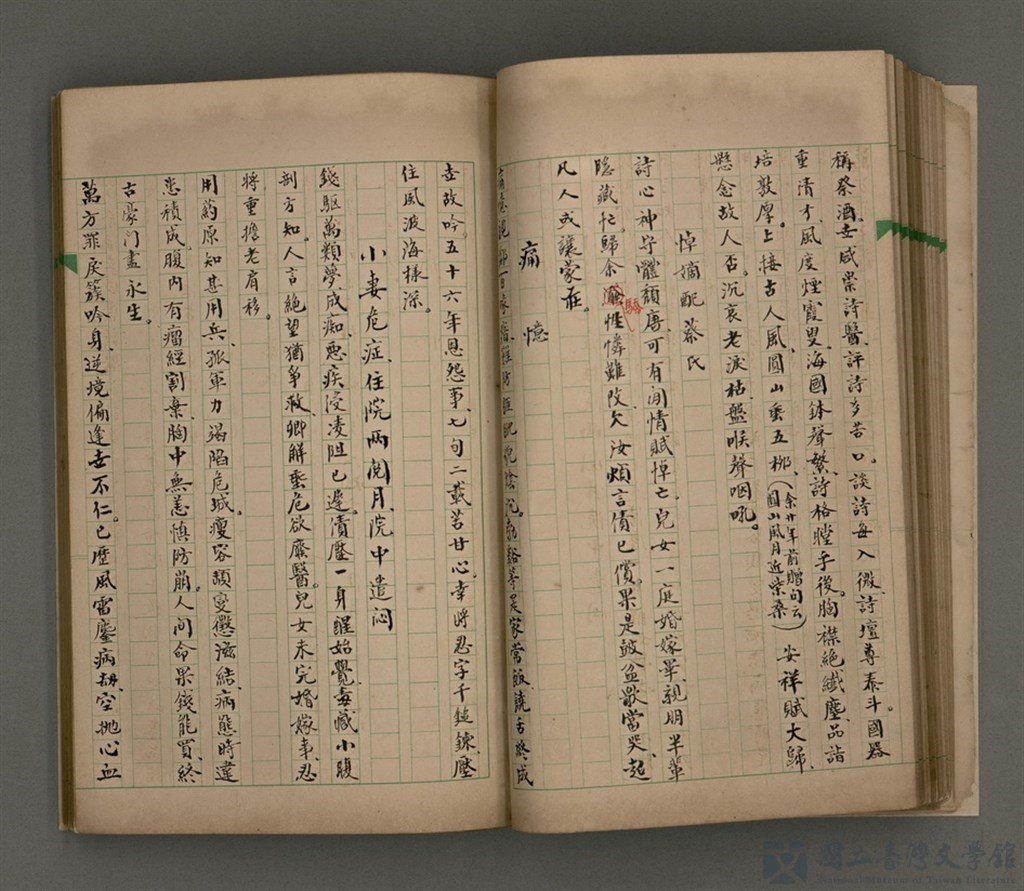 稱祭酒、世咸宗詩醫、評詩多苦口。談詩每入微、詩壇尊泰斗。國器
重清才、風度煙霞叟、海國鉢聲繁、詩格瞠乎後。胸襟絕纖塵、品詣
培敦厚。上接古人風、圓山垂五柳、(余廿年前贈句云圓山風月近柴桑)安祥賦大歸、
懸念故人否。沉哀老淚枯、盤喉聲咽吼。
悼嫡配蔡氏
詩心神守體頹唐、可有閒情賦悼亡。兒女一庭婚嫁畢、親朋半輩
隱藏忙。歸余 性憐難改、欠汝煩言債已償。果是鼓盆歌當哭、起
凡人或讓蒙莊。
痛憶
等是家常飯、饒舌終成
去故吟。五十六年恩怨事、七旬二載苦甘心。幸將忍字千鎚鍊、壓
住風波海樣深。
小妻危症、住院兩閱月、院中遣悶
錢驅萬類夢成痴、惡疾浸凌阻已遲。債壓一身醒始覺、毒臧小腹
剖方知。人言絕望猶爭救、卿解垂危欲廢醫。兒女未完婚嫁事、忍
將重擔老肩移。
用葯原知甚用兵、孤軍力竭陷危城。瘦容頹變懲滋結、病態時違
恙積成。腹內有瘤經割棄、胸中無恙慎防崩。人間命果錢能買、終
古豪门盡永生。
萬方罪戾簇吟身、逆境偏逢世不仁。已歷風雷塵病劫、空拋心血
國立臺灣文學館
National Museum of Taiwan Literature